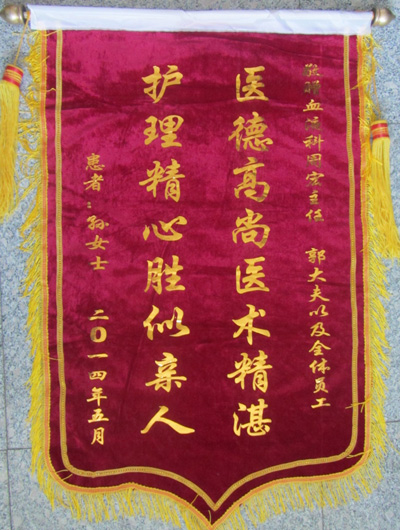 敬赠血液科周宏主任 郭大夫以及全体员工
医德高尚医术精湛
护理精心胜似亲人
患者：孙女士 二〇一四年五月